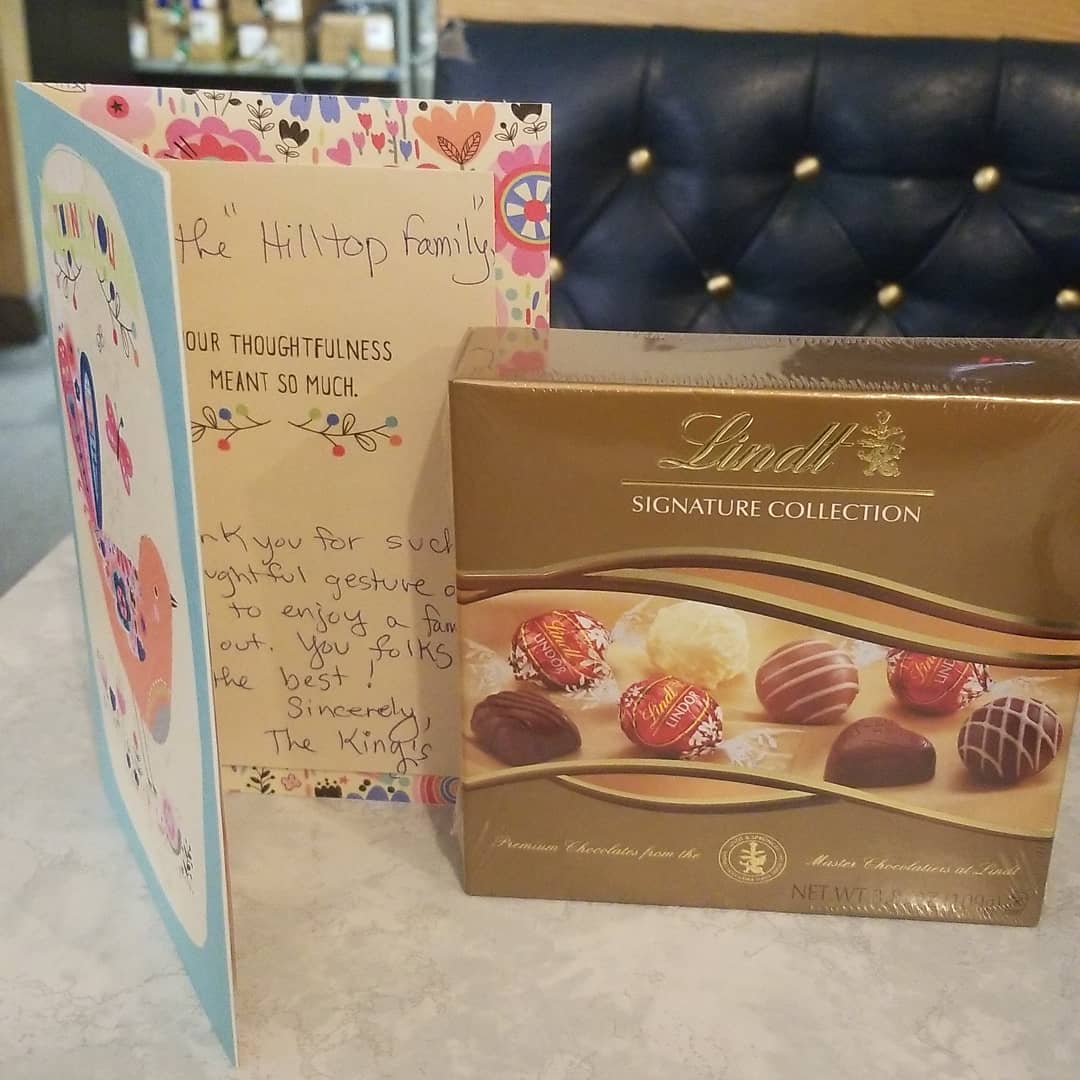 THANK YOU
the "Hilltop Family",
OUR THOUGHTFULNESS
MEANT SO MUCH.
nk you for such
ughtful gesture
to enjoy a fam
out. You folks
the best!
Sincerely,
The King's
Lindt
SIGNATURE COLLECTION
Lindt
LINDOR
Lindt
LINDOR
Lindt
Premium Chocolates from the
Master Chocolatiers at Lindt
NET WT 3.5 OZ (100g)